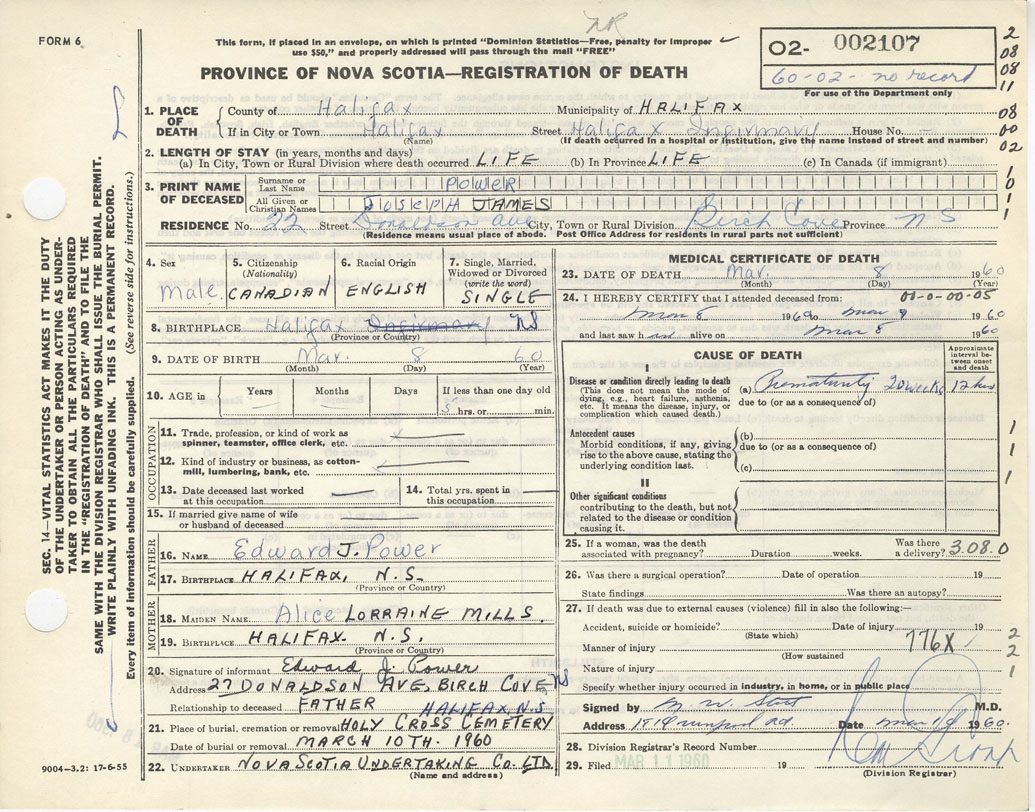 NR
FORM 6
This form, if placed in an envelope, on which is printed "Dominion Statistics—Free, penalty for improper
use $50," and properly addressed will pass through the mail "FREE"
PROVINCE OF NOVA SCOTIA—REGISTRATION OF DEATH
O2- 002107
60-02- no record
For use of the Department only
2
08
08
11
08
00
02
1
0
1
1
1. PLACE OF DEATH
County of Halifax Municipality of HALIFAX
If in City or Town Halifax Street Halifax Infirmary House No. –
(Name) (If death occurred in a hospital or institution, give the name instead of street and number)
2. LENGTH OF STAY (in years, months and days)
(a) In City, Town or Rural Division where death occurred LIFE (b) In Province LIFE (c) In Canada (if immigrant)
3. PRINT NAME OF DECEASED
Surname or Last Name POWER
All Given or Christian Names JOSEPH JAMES
RESIDENCE No. 22 Street Donaldson Ave City, Town or Rural Division Birch Cove Province N S
(Residence means usual place of abode. Post Office Address for residents in rural parts not sufficient)
4. Sex Male
5. Citizenship (Nationality) CANADIAN
6. Racial Origin ENGLISH
7. Single, Married, Widowed or Divorced (write the word) SINGLE
8. BIRTHPLACE Halifax Infirmary NS
(Province or Country)
9. DATE OF BIRTH Mar. 8 60
(Month) (Day) (Year)
10. AGE in Years Months Days If less than one day old
5 hrs. or min.
OCCUPATION
11. Trade, profession, or kind of work as
spinner, teamster, office clerk, etc. x
12. Kind of industry or business, as cotton-
mill, lumbering, bank, etc.
13. Date deceased last worked
at this occupation
14. Total yrs. spent in
this occupation
15. If married give name of wife
or husband of deceased
FATHER
16. NAME Edward J. Power
17. BIRTHPLACE HALIFAX, N.S.
(Province or Country)
MOTHER
18. MAIDEN NAME Alice LORRAINE MILLS.
19. BIRTHPLACE HALIFAX. N.S.
(Province or Country)
20. Signature of informant Edward J. Power
Address 27 DONALDSON AVE, BIRCH COVE NS
Relationship to deceased FATHER HALIFAX, N.S.
21. Place of burial, cremation or removal HOLY CROSS CEMETERY
Date of burial or removal MARCH 10TH. 1960
22. UNDERTAKER NOVA SCOTIA UNDERTAKING CO. LTD.
(Name and address)
MEDICAL CERTIFICATE OF DEATH
23. DATE OF DEATH Mar. 8 1960
(Month) (Day) (Year)
24. I HEREBY CERTIFY that I attended deceased from: 00-0-00-05
Mar 8 1960 to Mar 8 1960
and last saw h alive on Mar 8 1960
CAUSE OF DEATH
Approximate interval between onset and death
I
Disease or condition directly leading to death
(This does not mean the mode of
dying, e.g., heart failure, asthenia,
etc. It means the disease, injury, or
complication which caused death.)
(a) Prematurity 20 weeks 12 hrs
due to (or as a consequence of)
Antecedent causes
Morbid conditions, if any, giving
rise to the above cause, stating the
underlying condition last.
(b)
due to (or as a consequence of)
(c)
II
Other significant conditions
contributing to the death, but not
related to the disease or condition
causing it.
1
1
1
25. If a woman, was the death
associated with pregnancy? Duration weeks. Was there
a delivery? 3.08.0
26. Was there a surgical operation? Date of operation 19
State findings Was there an autopsy?
27. If death was due to external causes (violence) fill in also the following:—
Accident, suicide or homicide? Date of injury 19
(State which)
Manner of injury 776X
(How sustained
Nature of injury
Specify whether injury occurred in industry, in home, or in public place
2
2
1
Signed by M.D.
Address Date Mar 1960.
28. Division Registrar's Record Number
29. Filed MAR 11 1960 19
(Division Registrar)
SEC. 14—VITAL STATISTICS ACT MAKES IT THE DUTY
OF THE UNDERTAKER OR PERSON ACTING AS UNDER-
TAKER TO OBTAIN ALL THE PARTICULARS REQUIRED
IN THE "REGISTRATION OF DEATH" AND TO FILE THE
SAME WITH THE DIVISION REGISTRAR WHO SHALL ISSUE THE BURIAL PERMIT.
WRITE PLAINLY WITH UNFADING INK. THIS IS A PERMANENT RECORD.
Every item of information should be carefully supplied. (See reverse side for instructions.)
9004-3.2: 17-6-55